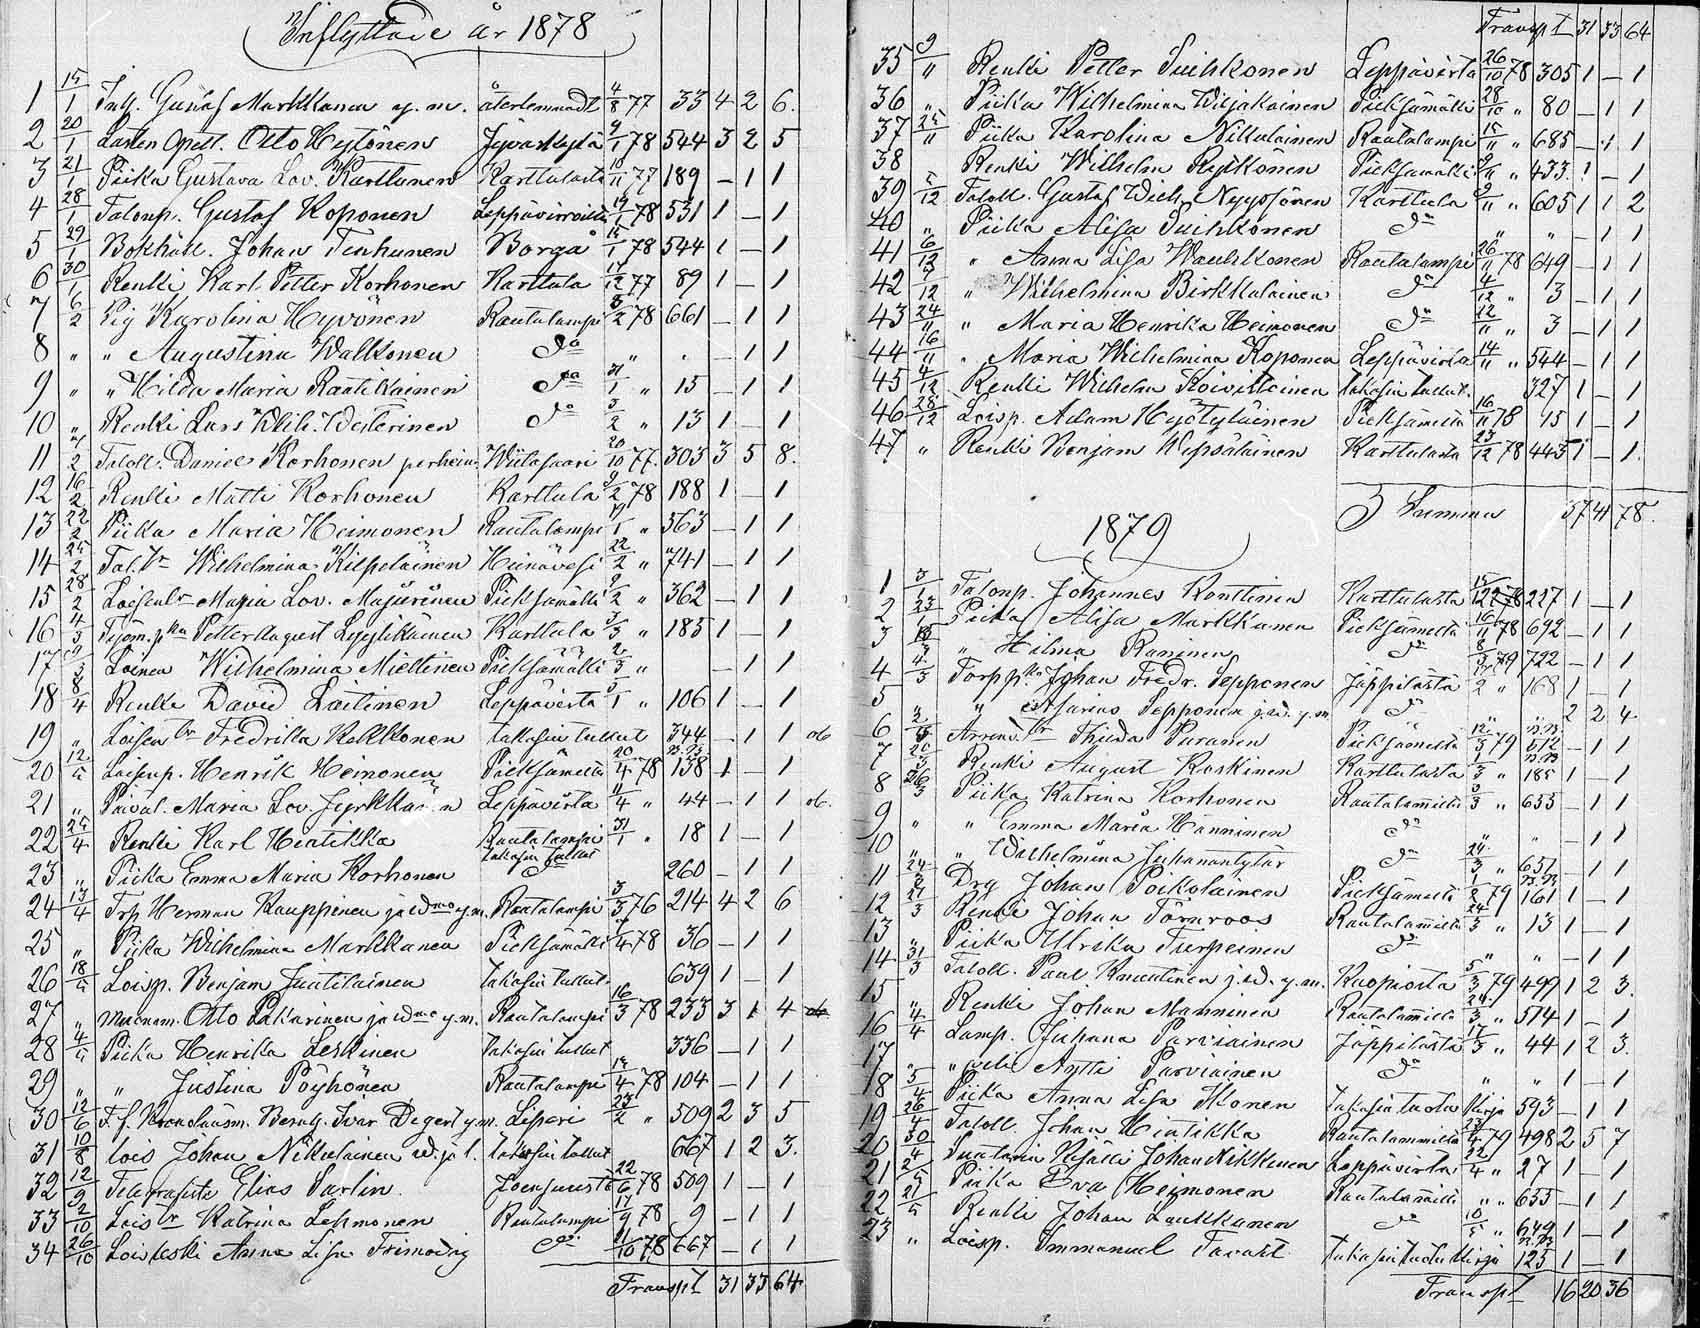 Inflyttade år 1878
1 15/1 Inh. Gustaf Markkanen y. m. återkommadt 4/8 77 33 4 2 6.
2 20/1 Lasten Opett. Otto Hytönen Jyväskylä 9/1 78 544 3 2 5
3 21/1 Piika Gustava Lov. Karttunen Karttulasta 10/11 77 189 – 1 1
4 28/1 Talonp. Gustaf Koponen Leppävirroilta 19/1 78 531 1 – 1
5 29/1 Bokhåll. Johan Tenhunen Borgå 15/1 78 544 1 – 1
6 30/1 Renki Karl Petter Korhonen Karttula 17/12 77 89 1 – 1
7 6/2 Pig Karolina Hyvönen Rautalampi 3/2 78 661 – 1 1
8 " " Augustina Walkonen Do " . – 1 1
9 " " Hilda Maria Raatikainen Do 21/1 " 15 – 1 1
10 " Renki Lars Wilh. Westerinen Do 3/2 " 13 1 – 1
11 7/2 Taloll. Daniel Korhonen perhein. Wiitasaari 20/10 77. 303 3 5 8.
12 16/2 Renki Matti Korhonen Karttula 9/2 78 188 1 – 1
13 22/2 Piika Maria Heimonen Rautalampi 19/1 " 563 – 1 1
14 25/2 Tal. tr Wilhelmina Kilpeläinen Heinävesi 22/2 " 741 – 1 1
15 28/2 Loisen tr Maria Lov. Majurinen Pieksämältä 9/2 " 362 – 1 1
16 4/3 Petter August Lyytikäinen Karttula 3/3 " 185 1 – 1
17 9/3 Loinen Wilhelmina Miettinen Pieksämältä 2/3 " – 1 1
18 8/4 Renki David Laitinen Leppävirta 3/1 " 106 1 – 1
19 " Loisen tr Fredrika Kekkonen takasin tullut 344 – 1 1 ob
20 12/4 Loisenp. Henrik Heimonen Pieksämeltä 20/4 78 138 1 – 1
21 " Maria Lov. Jyrkkänen Leppävirta 11/4 " 44 – 1 1 ob.
22 25/4 Renki Karl Hintikka Rautalampi 31/1 " 18 1 – 1
23 " Piika Emma Maria Korhonen takasin tullut 260 – 1 1
24 13/4 Trp Herman Kauppinen ja vdmo y.m. Rautalampi 3/3 76 214 4 2 6
25 " Piika Wilhelmina Markkanen Pieksämältä 4 78 36 – 1 1
26 18/4 Loisp. Benjam Juutilainen takasin tullut 639 1 – 1
27 " Otto Pakarinen ja vdmo y.m. Rautalampi 16/3 78 233 3 1 4
28 4/4 Piika Henrika Leskinen takasin tullut 336 – 1 1
29 " " Justina Pöyhönen Rautalampi 14/4 78 104 – 1 1
30 12/6 Ivar Degert y.m. Liperi 23/2 " 509 2 3 5
31 10/8 lois Johan Nikulainen vd. ja l. takasin tullut 667 1 2 3.
32 12/9 Telegrafista Elias Parlin. Joensuusta 22/6 78 509 1 – 1
33 2/10 Lois tr Katrina Lehmonen Rautalampi 17/9 78 9 – 1 1
34 26/10 Loisleski Anna Lisa Frimodig Do. 21/10 78 667 – 1 1
Transpt 31 33 64
Transpt 31 33 64
35 9/11 Renki Petter Suihkonen Leppävirta 26/10 78 305 1 – 1
36 " Piika Wilhelmina Wiljakainen Pieksämältä 28/10 " 80 – 1 1
37 25/11 Piika Karolina Nikulainen Rautalampi 15/11 " 685 – 1 1
38 Renki Wilhelm Rytkönen Pieksämältä 9/11 " 433. 1 – 1
39 2/12 Taloll. Gustaf Wilh. Nyyssönen Karttula 9/11 " 605 1 1 2
40 " Piika Alisa Suihkonen Do " " – 1 1
41 6/12 " Anna Lisa Wauhkonen Rautalampi 26/11 78 649 – 1 1
42 7/12 " Wilhelmina Birkkalainen Do 4/12 " 3 – 1 1
43 24/11 " Maria Henrika Heimonen Do 22/11 " 3 – 1 1
44 16/11 . Maria Wilhelmina Koponen Leppävirta 14/11 " 544 – 1 1
45 4/12 Renki Wilhelm Koivistoinen takasin tullut. 327 1 – 1
46 28/12 Loisp. Adam Hyötyläinen Pieksämeltä 16/11 78 15 1 – 1
47 " Renki Benjam Wepsäläinen Karttulasta 23/12 78 443 1 – 1.
Summa 37 41 78.
1879
1 3/1 Talonp. Johannes Konttinen Karttulasta 15/12 78 227 1 – 1
2 23/1 Piika Alisa Markkanen Pieksämeltä 16/11 78 692 – 1 1
3 " Hilma Raninen Do 8/2 79 722 – 1 1
4 4/3 Torpp. Johan Fredr. Sepponen Jäppilästä 2 " 168 1 – 1
5 " " Asarias Sepponen j. vd. y.m. Do " " 2 2 4.
6 2/3 Arrend. tr Thilda Puranen Pieksämeltä 12/3 79 512 – 1 1
7 20/3 Renki August Koskinen Karttulasta 1/3 " 185 1 – 1
8 26/3 Piika Katrina Korhonen Rautalammilta 3/3 " 655 – 1 1
9 " " Emma Maria Hänninen Do " " – 1 1
10 " " Wilhelmina Juhanantytär Do 24/3 " 651 – 1 1
11 24/2 Drg Johan Poikolainen Pieksämeltä 8/2 79 161 1 – 1
12 27/3 Renki Johan Törnroos Rautalammilta 24/3 " 13 1 – 1
13 " Piika Ulrika Turpeinen Do " " – 1 1
14 31/3 Taloll. Paul Knuutinen j. vd. y.m. Kuopiosta 5/3 79 499 1 2 3.
15 " Renki Johan Manninen Rautalammilta 24/3 " 514 1 – 1
16 4/4 Lamp. Juhana Parviainen Jäppilästä 17/3 " 44 1 2 3.
17 " " veli Antti Parviainen Do " " 1 – 1
18 5/4 Piika Anna Lisa Ikonen takasin tuotu kirja 593 – 1 1
19 26/4 Taloll. Johan Hintikka Rautalammilta 23/4 79 498 2 5 7
20 30/4 Suutarin Johan Nikkinen Leppävirta 22/4 " 27 1 – 1
21 2/5 Piika Eva Heimonen Rautalammilta " " 655 – 1 1
22 21/5 Renki Johan Laukkanen Do 10/5 " 649 1 – 1
23 " Loisp. Immanuel Tavast takasin tuotu kirja 125 1 – 1
Transpt 16 20 36